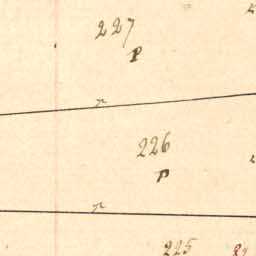 227
P
226
P
225